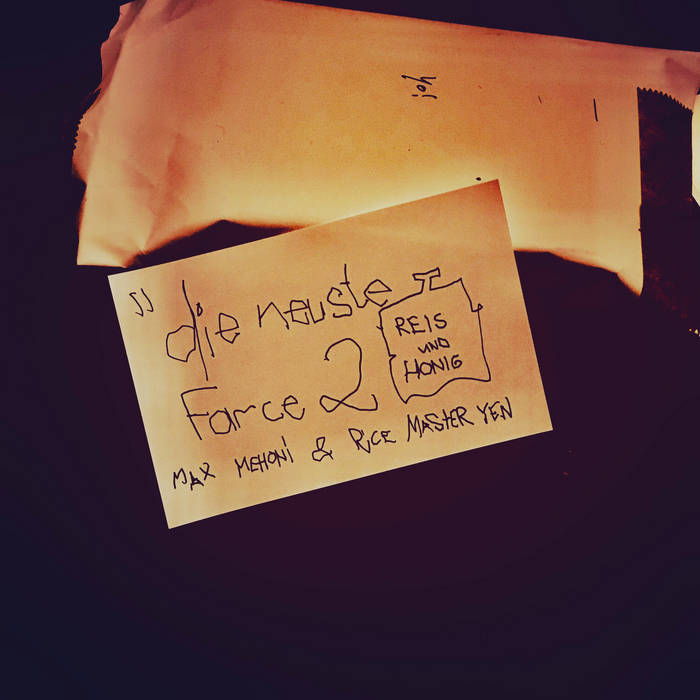 joh
"die neuste
Farce 2
REIS
UND
HONIG
MAX MEHONI & RICE MASTER YEN